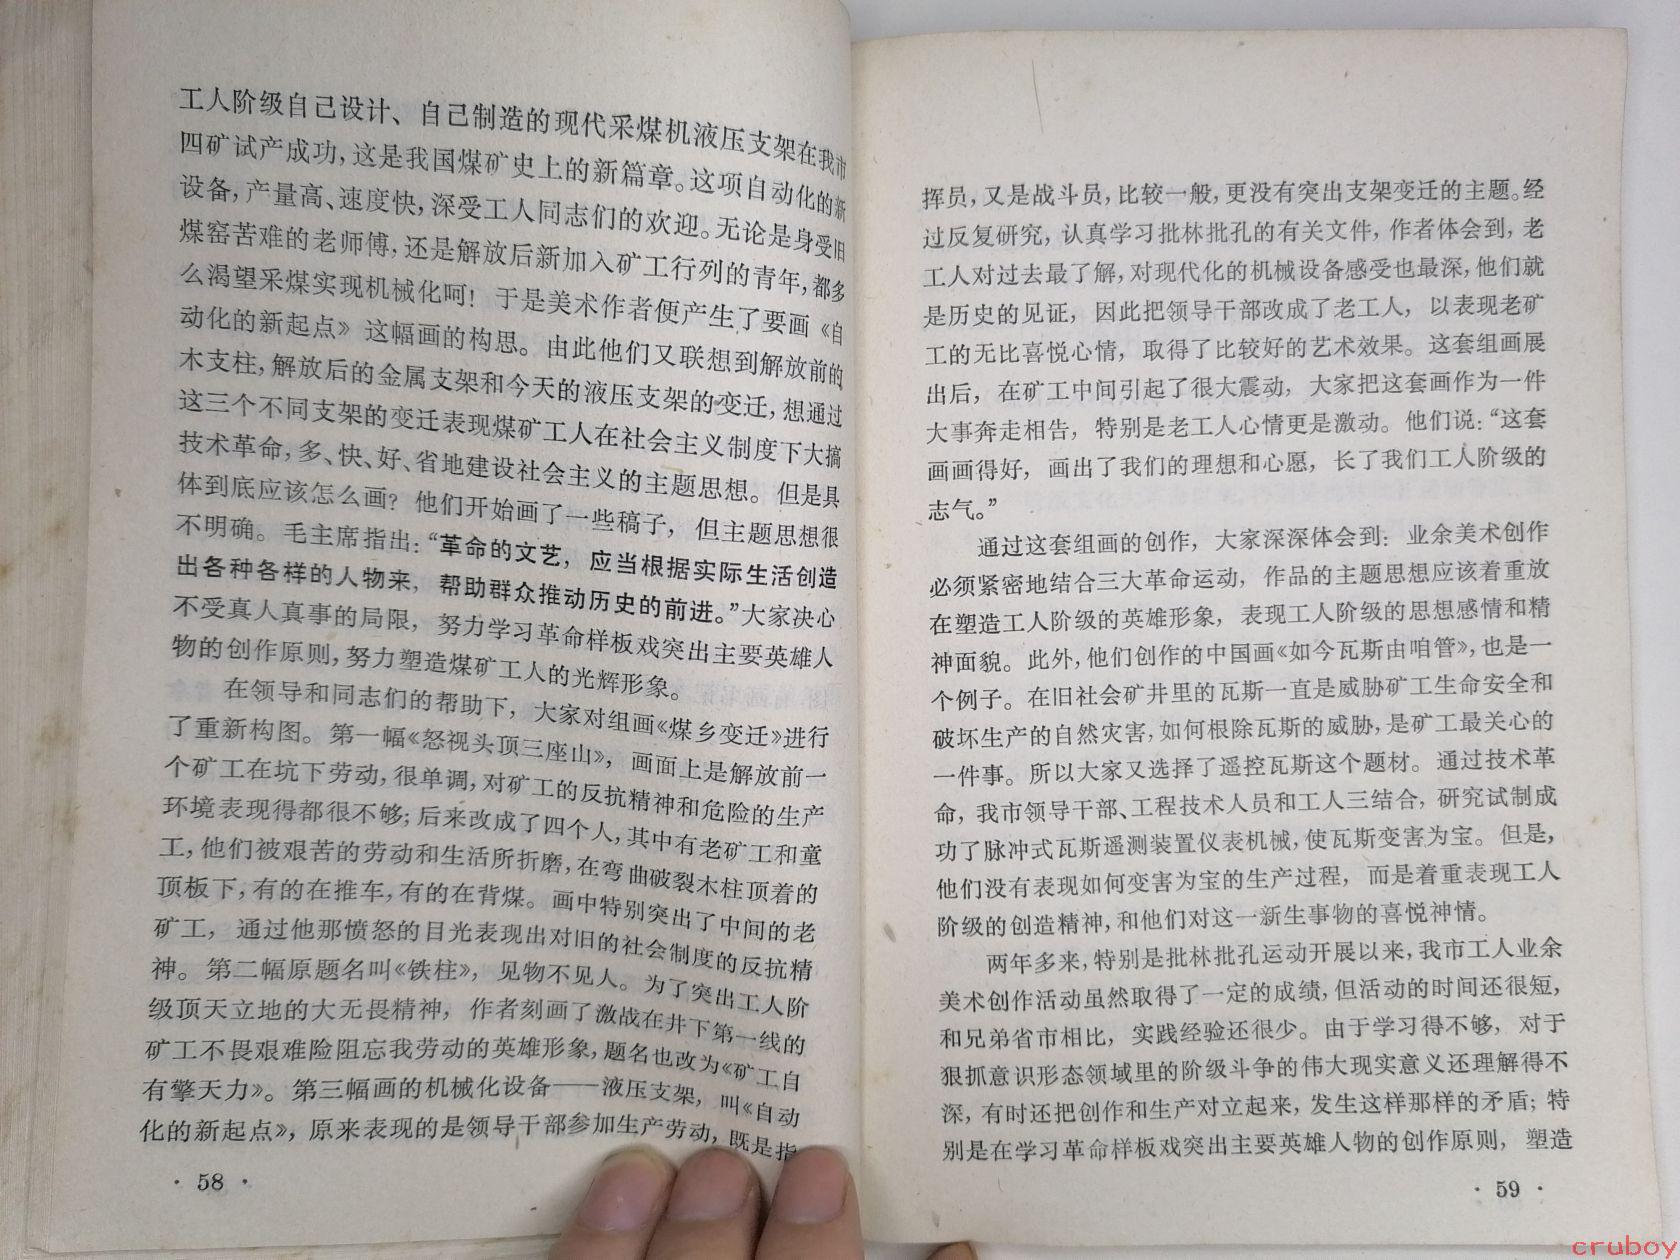 工人阶级自己设计、自己制造的现代采煤机液压支架在我市
四矿试产成功，这是我国煤矿史上的新篇章。这项自动化的新
设备，产量高、速度快，深受工人同志们的欢迎。无论是身受旧
煤窑苦难的老师傅，还是解放后新加入矿工行列的青年，都多
么渴望采煤实现机械化呵！于是美术作者便产生了要画《自
动化的新起点》这幅画的构思。由此他们又联想到解放前的
木支柱，解放后的金属支架和今天的液压支架的变迁，想通过
这三个不同支架的变迁表现煤矿工人在社会主义制度下大搞
技术革命，多、快、好、省地建设社会主义的主题思想。但是具
体到底应该怎么画？他们开始画了一些稿子，但主题思想很
不明确。毛主席指出：“革命的文艺，应当根据实际生活创造
出各种各样的人物来，帮助群众推动历史的前进。”大家决心
不受真人真事的局限，努力学习革命样板戏突出主要英雄人
物的创作原则，努力塑造煤矿工人的光辉形象。
在领导和同志们的帮助下，大家对组画《煤乡变迁》进行
了重新构图。第一幅《怒视头顶三座山》，画面上是解放前一
个矿工在坑下劳动，很单调，对矿工的反抗精神和危险的生产
环境表现得都很不够；后来改成了四个人，其中有老矿工和童
工，他们被艰苦的劳动和生活所折磨，在弯曲破裂木柱顶着的
顶板下，有的在推车，有的在背煤。画中特别突出了中间的老
矿工，通过他那愤怒的目光表现出对旧的社会制度的反抗精
神。第二幅原题名叫《铁柱》，见物不见人。为了突出工人阶
级顶天立地的大无畏精神，作者刻画了激战在井下第一线的
矿工不畏艰难险阻忘我劳动的英雄形象，题名也改为《矿工自
有擎天力》。第三幅画的机械化设备——液压支架，叫《自动
化的新起点》，原来表现的是领导干部参加生产劳动，既是指
· 58 ·
挥员，又是战斗员，比较一般，更没有突出支架变迁的主题。经
过反复研究，认真学习批林批孔的有关文件，作者体会到，老
工人对过去最了解，对现代化的机械设备感受也最深，他们就
是历史的见证，因此把领导干部改成了老工人，以表现老矿
工的无比喜悦心情，取得了比较好的艺术效果。这套组画展
出后，在矿工中间引起了很大震动，大家把这套画作为一件
大事奔走相告，特别是老工人心情更是激动。他们说：“这套
画画得好，画出了我们的理想和心愿，长了我们工人阶级的
志气。”
通过这套组画的创作，大家深深体会到：业余美术创作
必须紧密地结合三大革命运动，作品的主题思想应该着重放
在塑造工人阶级的英雄形象，表现工人阶级的思想感情和精
神面貌。此外，他们创作的中国画《如今瓦斯由咱管》，也是一
个例子。在旧社会矿井里的瓦斯一直是威胁矿工生命安全和
破坏生产的自然灾害，如何根除瓦斯的威胁，是矿工最关心的
一件事。所以大家又选择了遥控瓦斯这个题材。通过技术革
命，我市领导干部、工程技术人员和工人三结合，研究试制成
功了脉冲式瓦斯遥测装置仪表机械，使瓦斯变害为宝。但是，
他们没有表现如何变害为宝的生产过程，而是着重表现工人
阶级的创造精神，和他们对这一新生事物的喜悦神情。
两年多来，特别是批林批孔运动开展以来，我市工人业余
美术创作活动虽然取得了一定的成绩，但活动的时间还很短，
和兄弟省市相比，实践经验还很少。由于学习得不够，对于
狠抓意识形态领域里的阶级斗争的伟大现实意义还理解得不
深，有时还把创作和生产对立起来，发生这样那样的矛盾；特
别是在学习革命样板戏突出主要英雄人物的创作原则，塑造
· 59 ·
cruboy